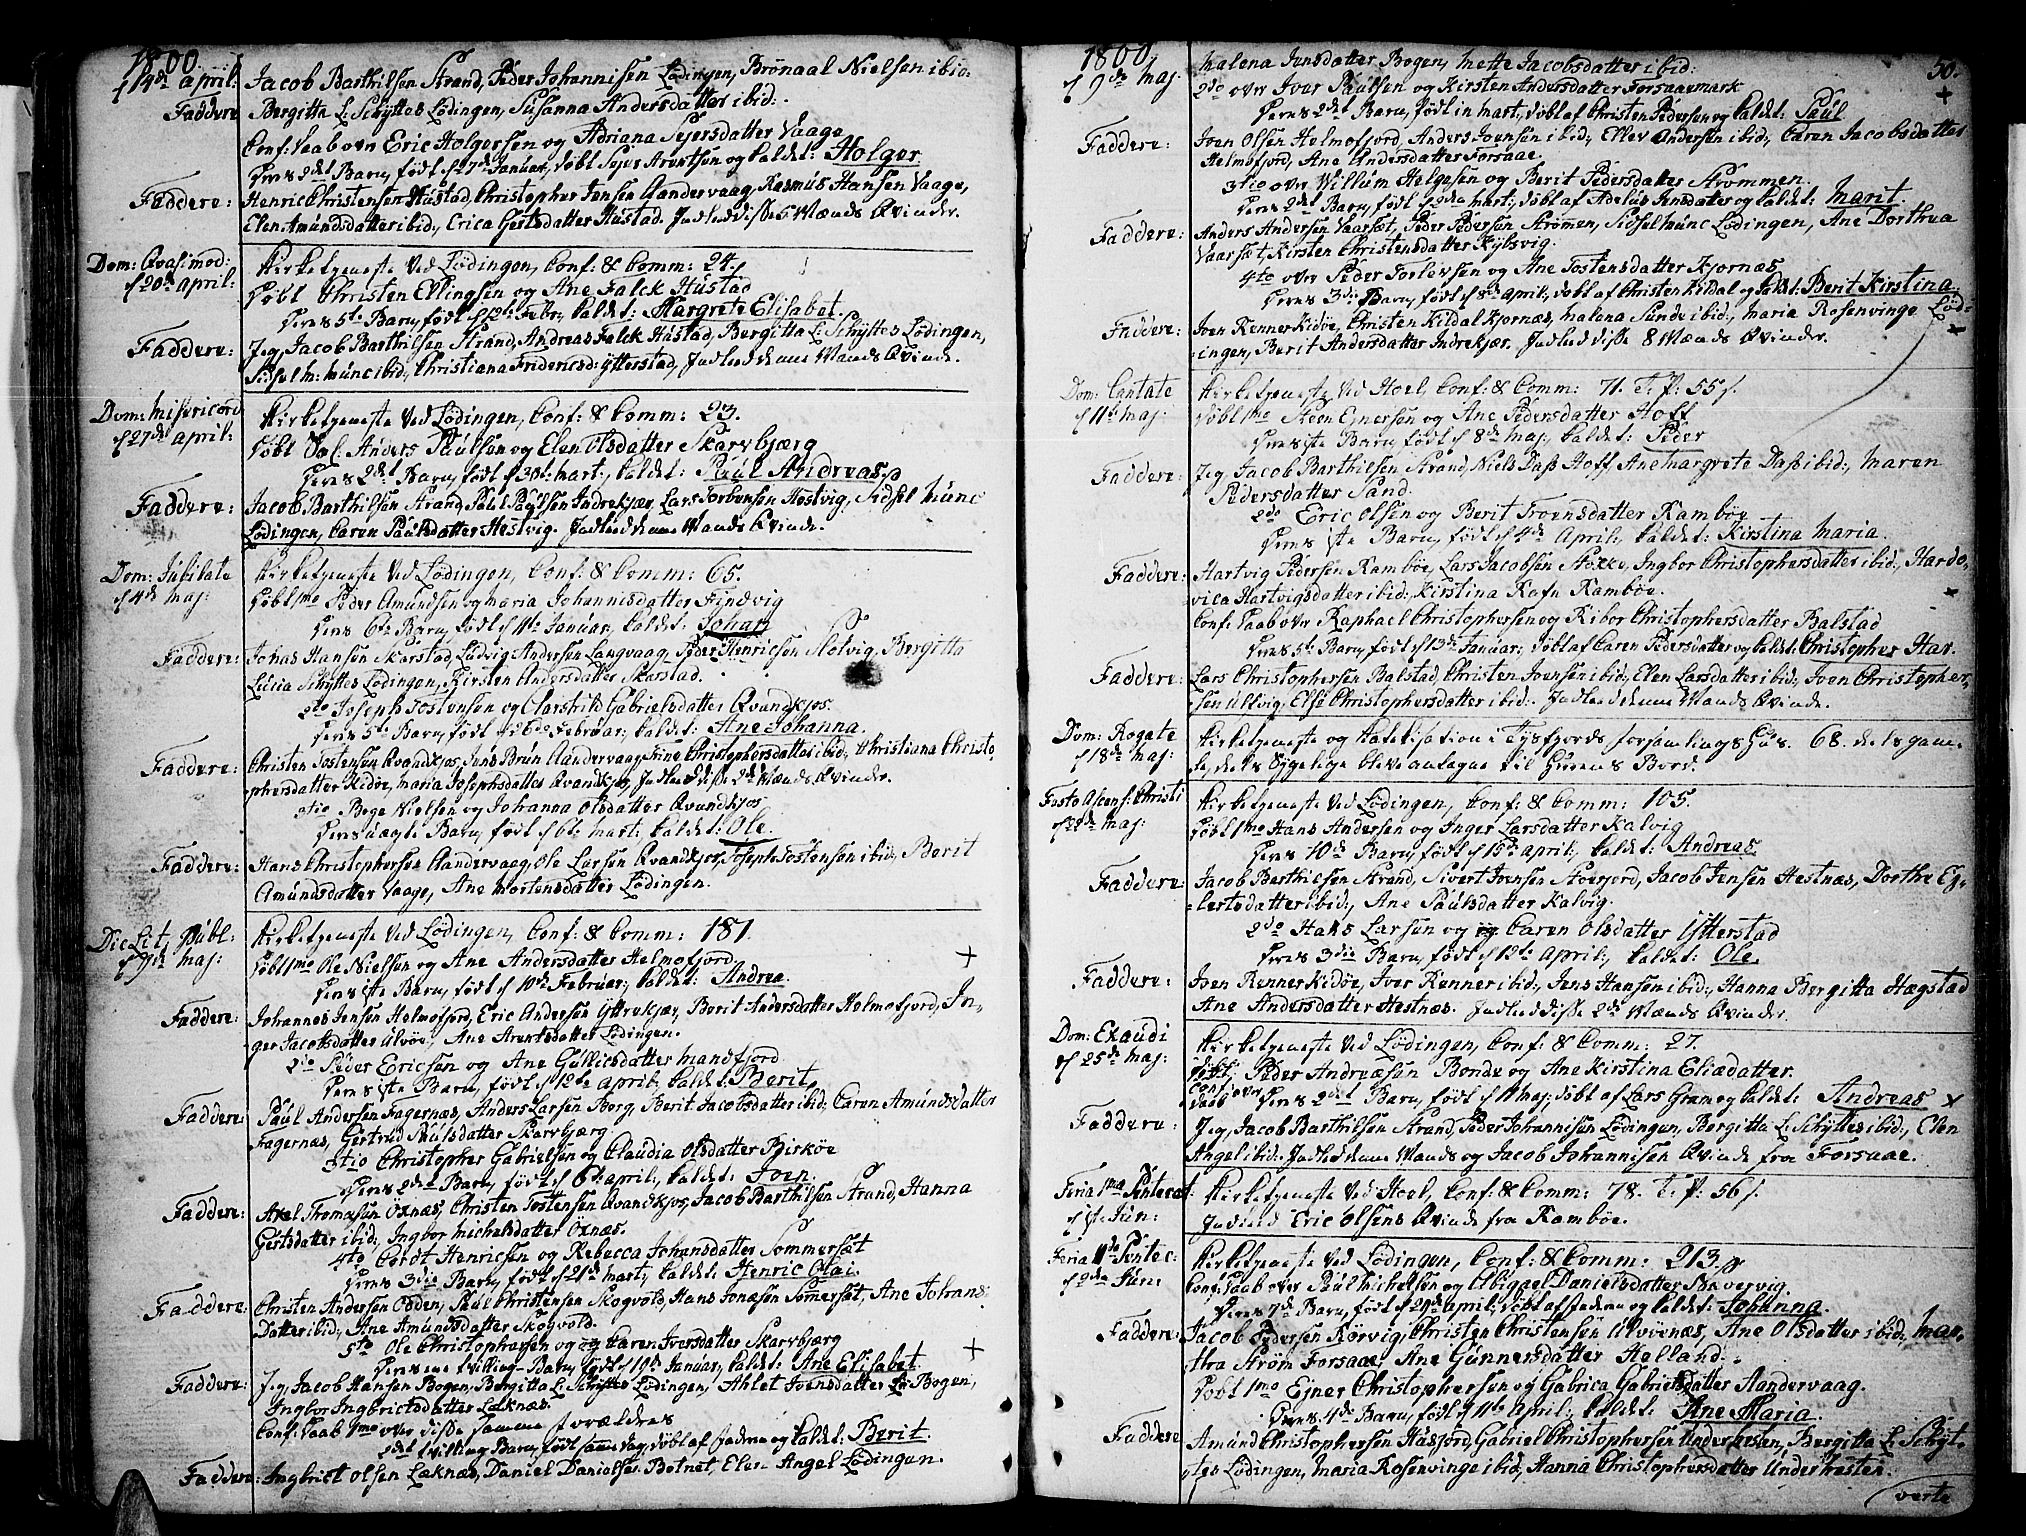 1800.
14de April: Jacob Barthilsen Strand, Peder Johannisen Lödingen, Brönaal Nielsen ibid:
Faddere Bergitta L: Schyttes Lödingen, Susanna Andersdatter ibid:
Conf: Daab over Eric Holgersen og Adriana Sejersdatter Vaage
deres 2det Barn, født d 27de Januar, døbt Sejer Arentsen og kaldet: Holger
Faddere: Henric Christensen Hustad, Christopher Jensen Aandervaag, Rasmus Hansen Vaage,
Elen Amundsdatter ibid:, Erica Gertsdatter Hustad. Indledd disse Mænds Qvinder.
Dom: Qvasimod: Kirketjeneste ved Lödingen, Conf: & Comm: 24.
d 20de April: Døbt Christen Ellingsen og Ane Falck Hustad
deres 5te Barn, født d 12te Febr:, kaldet: Margrete Elisabet.
Faddere: Jeg, Jacob Barthilsen Strand, Andreas Falck Hustad, Bergitta L: Schyttes Lödingen,
Sidsel M: Munc ibid:, Christiana Fridericsd: Ytterstad, Indledd denne Mands Qvinde.
Dom: Misericord Kirketjeneste ved Lödingen, Conf: & Comm: 23.
d 27de April: Døbt Anders Paulsen og Elen Olsdatter Skarvbjærg
deres 2det Barn, født d 30te Mart:, kaldet: Paul Andreas
Faddere: Jacob Barthilsen Strand, Paul Paulsen Indrekjær, Lars Torbensen Hestvig, Sidsel Munc
Lödingen, Caren Paulsdatter Hestvig. Indledd denne Mands Qvinde.
Dom: Jubilate Kirketjeneste ved Lödingen, Conf: & Comm: 65.
d 4de Maj: Døbt 1mo Peder Amundsen og Maria Johannisdatter Findvig
deres 6te Barn, født d 11te Januar, kaldet: Johan
Faddere: Johas Hansen Skarstad, Ludvig Andersen Langvaag, Peder Henricsen Slotvig, Bergitta
Lucia Schyttes Lödingen, Kirsten Andersdatter Skarstad.
2do Joseph Tostensen og Clarshild Gabrielsdatter Qvandkjos
deres 5te Barn, født d 26de Februar, kaldet: Ane Johanna.
Faddere: Christen Tostensen Qvandkjos, Jens Brun Aandervaag, Trine Christophersdatter ibid:, Christiana Christo-
phersdatter Ridöe, Maria Josephsdatter Qvandkjos, Indledd disse 2de Mænds Qvinder.
3tio Boge Nielsen og Johanna Olsdatter Qvandkjos
deres ægte Barn, født d 6te Mart:, kaldet: Ole.
Faddere: Hans Christophersen Aandervaag, Ole Larsen Qvandkjos, Joseph Tostensen ibid:, Berit
Amundsdatter Vaage, Ane Mortensdatter Lödingen.
Die Lit: Publ: Kirketjeneste ved Lödingen, Conf: & Comm: 181.
d 9de Maj: Døbt 1mo Ole Nielsen og Ane Andersdatter Helmofjord +
deres 1ste Barn, født d 10de Februar, kaldet: Andrea.
Faddere: Johannes Jensen Helmofjord, Eric Andersen Yttrekjær, Berit Andersdatter Helmofjord, In-
ger Jacobsdatter Alvöe, Ane Arentsdatter Lödingen.
2do Peder Ericsen og Ane Gullicsdatter Mandfjord
deres 1ste Barn, født d 12te April, kaldet: Berit
Faddere: Paul Andersen Fagernæs, Anders Larsen Borg, Berit Jacobsdatter ibid:, Caren Amundsdatter
Fagernæs, Gertrud Paulsdatter Skarvbjærg.
3tio Christopher Gabrielsen og Claudia Olsdatter Birköe
deres 2det Barn, født d 6te April, kaldet: Joen.
Faddere: Axel Thomæsen Öxnæs, Christen Tostensen Qvandkjos, Jacob Barthilsen Strand, Hanna
Gertsdatter ibid:, Ingbor Michelsdatter Öxnæs.
4to Cordt Henricsen og Rebecca Johansdatter Sommersæt
deres 3die Barn, født d 21de Mart:, kaldet: Henric Olai.
Faddere: Christen Andersen Odden, Paul Christensen Skogvold, Hans Jonæsen Sommersæt, Ane Johans-
datter ibid:, Ane Amundsdatter Skogvold.
5to Ole Christophersen og Karen Iversdatter Skarvbjærg +
deres ene Tvilling-Barn, født d 19de Januar, kaldet: Ane Elisabet.
Faddere: Jeg, Jacob Hansen Bogen, Bergitta L: Schyttes Lödingen, Ahlet Joensdatter Bogen,
Ingbor Ingbrictsdatter Læknæs.
Conf: Daab 1mo over disse samme Forældres
2det Tvilling Barn, født samme dag, døbt af Faderen og kaldet: Berit.
Faddere: Ingbrict Olsen Læknæs, Daniel Danielsen Botnet, Elen Angel Lödingen.
1800. 50.
d 9de Maj: Malena Jensdatter Bogen, Mette Jacobsdatter ibid:
2do over Iver Paulsen og Kirsten Andersdatter Forsaaemark +
deres 2det Barn, født in Mart:, døbt af Christen Pedersen og kaldet: Paul
Faddere: Iven Olsen Helmofjord, Anders Ivensen ibid:, Ellev Andersen ibid:, Caren Jacobsdatter
Helmofjord, Ane Andersdatter Forsaae.
3tio over Willum Helgesen og Berit Pedersdatter Strommen
deres 2det Barn, født d 2den Mart:, døbt af Adelus Jensdatter og kaldet: Marit.
Faddere: Anders Andersen Vaarsæt, Peder Pedersen Strömen, Sidsel Munc Lödingen, Ane Dorthea
Vaarsæt, Kirsten Christensdatter Kylsvig.
4to over Peder Torlevsen og Ane Tostensdatter Kjornæs
deres 3die Barn, født d 8de April, døbt af Christen Kildal og kaldet: Berit Kirstina.
Faddere: Iven Renner Kidöe, Christen Kildal Kjornæs, Malena Sunde ibid:, Maria Rosenvinge Löd-
ingen, Berit Andersdatter Indrekjær. Indledd disse 8 Mænds Qvinder. +
Dom: Cantate Kirketjeneste ved Hoel, Conf: & Comm: 71. T: P: 55 s.
d 11te Maj: Døbt 1mo Steen Ejnersen og Ane Pedersdatter Hoff
deres 1ste Barn, født d 8de Maj, kaldet: Peder
Faddere: Jeg, Jacob Barthilsen Strand, Niels Dass Hoff, Ane Margrete Dass ibid:, Maren
Pedersdatter Sand.
2do Eric Olsen og Berit Troensdatter Ramböe
deres 1ste Barn, født d 4de April, kaldet: Kirstina Maria.
Faddere: Hartvig Pedersen Ramböe, Lars Jacobsen Stokke, Ingbor Christophersdatter ibid:, Hardo-
vica Hartvigsdatter ibid:, Kirstina Rafn Ramböe.
Conf: Daab over Raphael Christophersen og Ribor Christophersdatter Balstad +
deres 5te Barn, født d 13de Januar, døbt af Caren Pedersdatter og kaldet: Christopher Har.
Faddere: Lars Christophersen Balstad, Christen Ivensen ibid:, Elen Larsdatter ibid:, Iven Christopher-
sen Ulvvig, Else Christophersdatter ibid:. Indledd denne Mands Qvinde.
Dom: Rogate Kirketjeneste og Katekisation i Tysfjords Forsamlings Huus. 68. dels gam-
d 18de Maj: le, dels Sygelige bleve antagne til Herrens Bord.
Festo Ascens: Christi Kirketjeneste ved Lödingen, Conf: & Comm: 105.
d 22de Maj: Døbt 1mo Hans Andersen og Inger Larsdatter Kalvig
deres 10de Barn, født d 15de April, kaldet: Andreas
Faddere: Jacob Barthilsen Strand, Sivert Ivensen Stoerjord, Jacob Jensen Hestnæs, Dorthe Eg-
lertsdatter ibid:, Ane Paulsdatter Kalvig.
2do Hans Larsen og Caren Olsdatter Ytterstad
deres 3die Barn, født d 12te April, kaldet: Ole.
Faddere: Iven Renner Kidöe, Iver Renner ibid:, Jens Hansen ibid:, Hanna Bergitta Hægstad
Ane Andersdatter Hestnæs. Indledd disse 2de Mænds Qvinder.
Dom: Exaudi Kirketjeneste ved Lödingen, Conf: & Comm: 27.
d 25de Maj: Conf: Daab over Peder Andreæsen Bonde og Ane Kirstina Eliædatter.
deres 2det Barn, født d 1 Maj, døbt af Lars Grøn og kaldet: Andreas x
Faddere: Jeg, Jacob Barthilsen Strand, Peder Johannisen Lödingen, Bergitta L: Schyttes ibid:, Elen
Angel ibid:. Indledd denne Mands og Jacob Johannisen Qvinde fra Forsaae.
Feria 1ma Pentecost: Kirketjeneste ved Hoel, Conf: & Comm: 78. T: P: 56 s.
d 1ste Jun: Indledd Eric Olsens Qvinde fra Ramböe.
Feria IIda Pentec: Kirketjeneste ved Lödingen, Conf: & Comm: 213.
d 2den Jun: Conf: Daab over Paul Michelsen og Abigael Danielsdatter Bavervig
deres 7de Barn, født d 29de April, døbt af Faderen og kaldet: Johanna.
Faddere: Jacob Pedersen Rörvig, Christen Christensen Ulvönæs, Ane Olsdatter ibid:, Mar-
tha Ström Forsaae, Ane Gunnersdatter Helland.
Døbt 1mo Ejner Christophersen og Gabrica Gabrielsdatter Aandervaag.
deres 4de Barn, født d 11te April, kaldet: Ane Maria.
Faddere Amund Christophersen Husfjord, Gabriel Christophersen Underhesten, Bergitta L: Schyt-
tes Lödingen, Maria Rosenvinge ibid:, Hanna Christophersdatter Underhesten.
verte